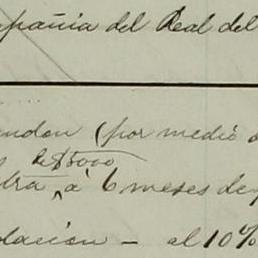 pañia del Real del
endon (por medio
de $5000
tra, á 6 meses de
lacion — al 10%